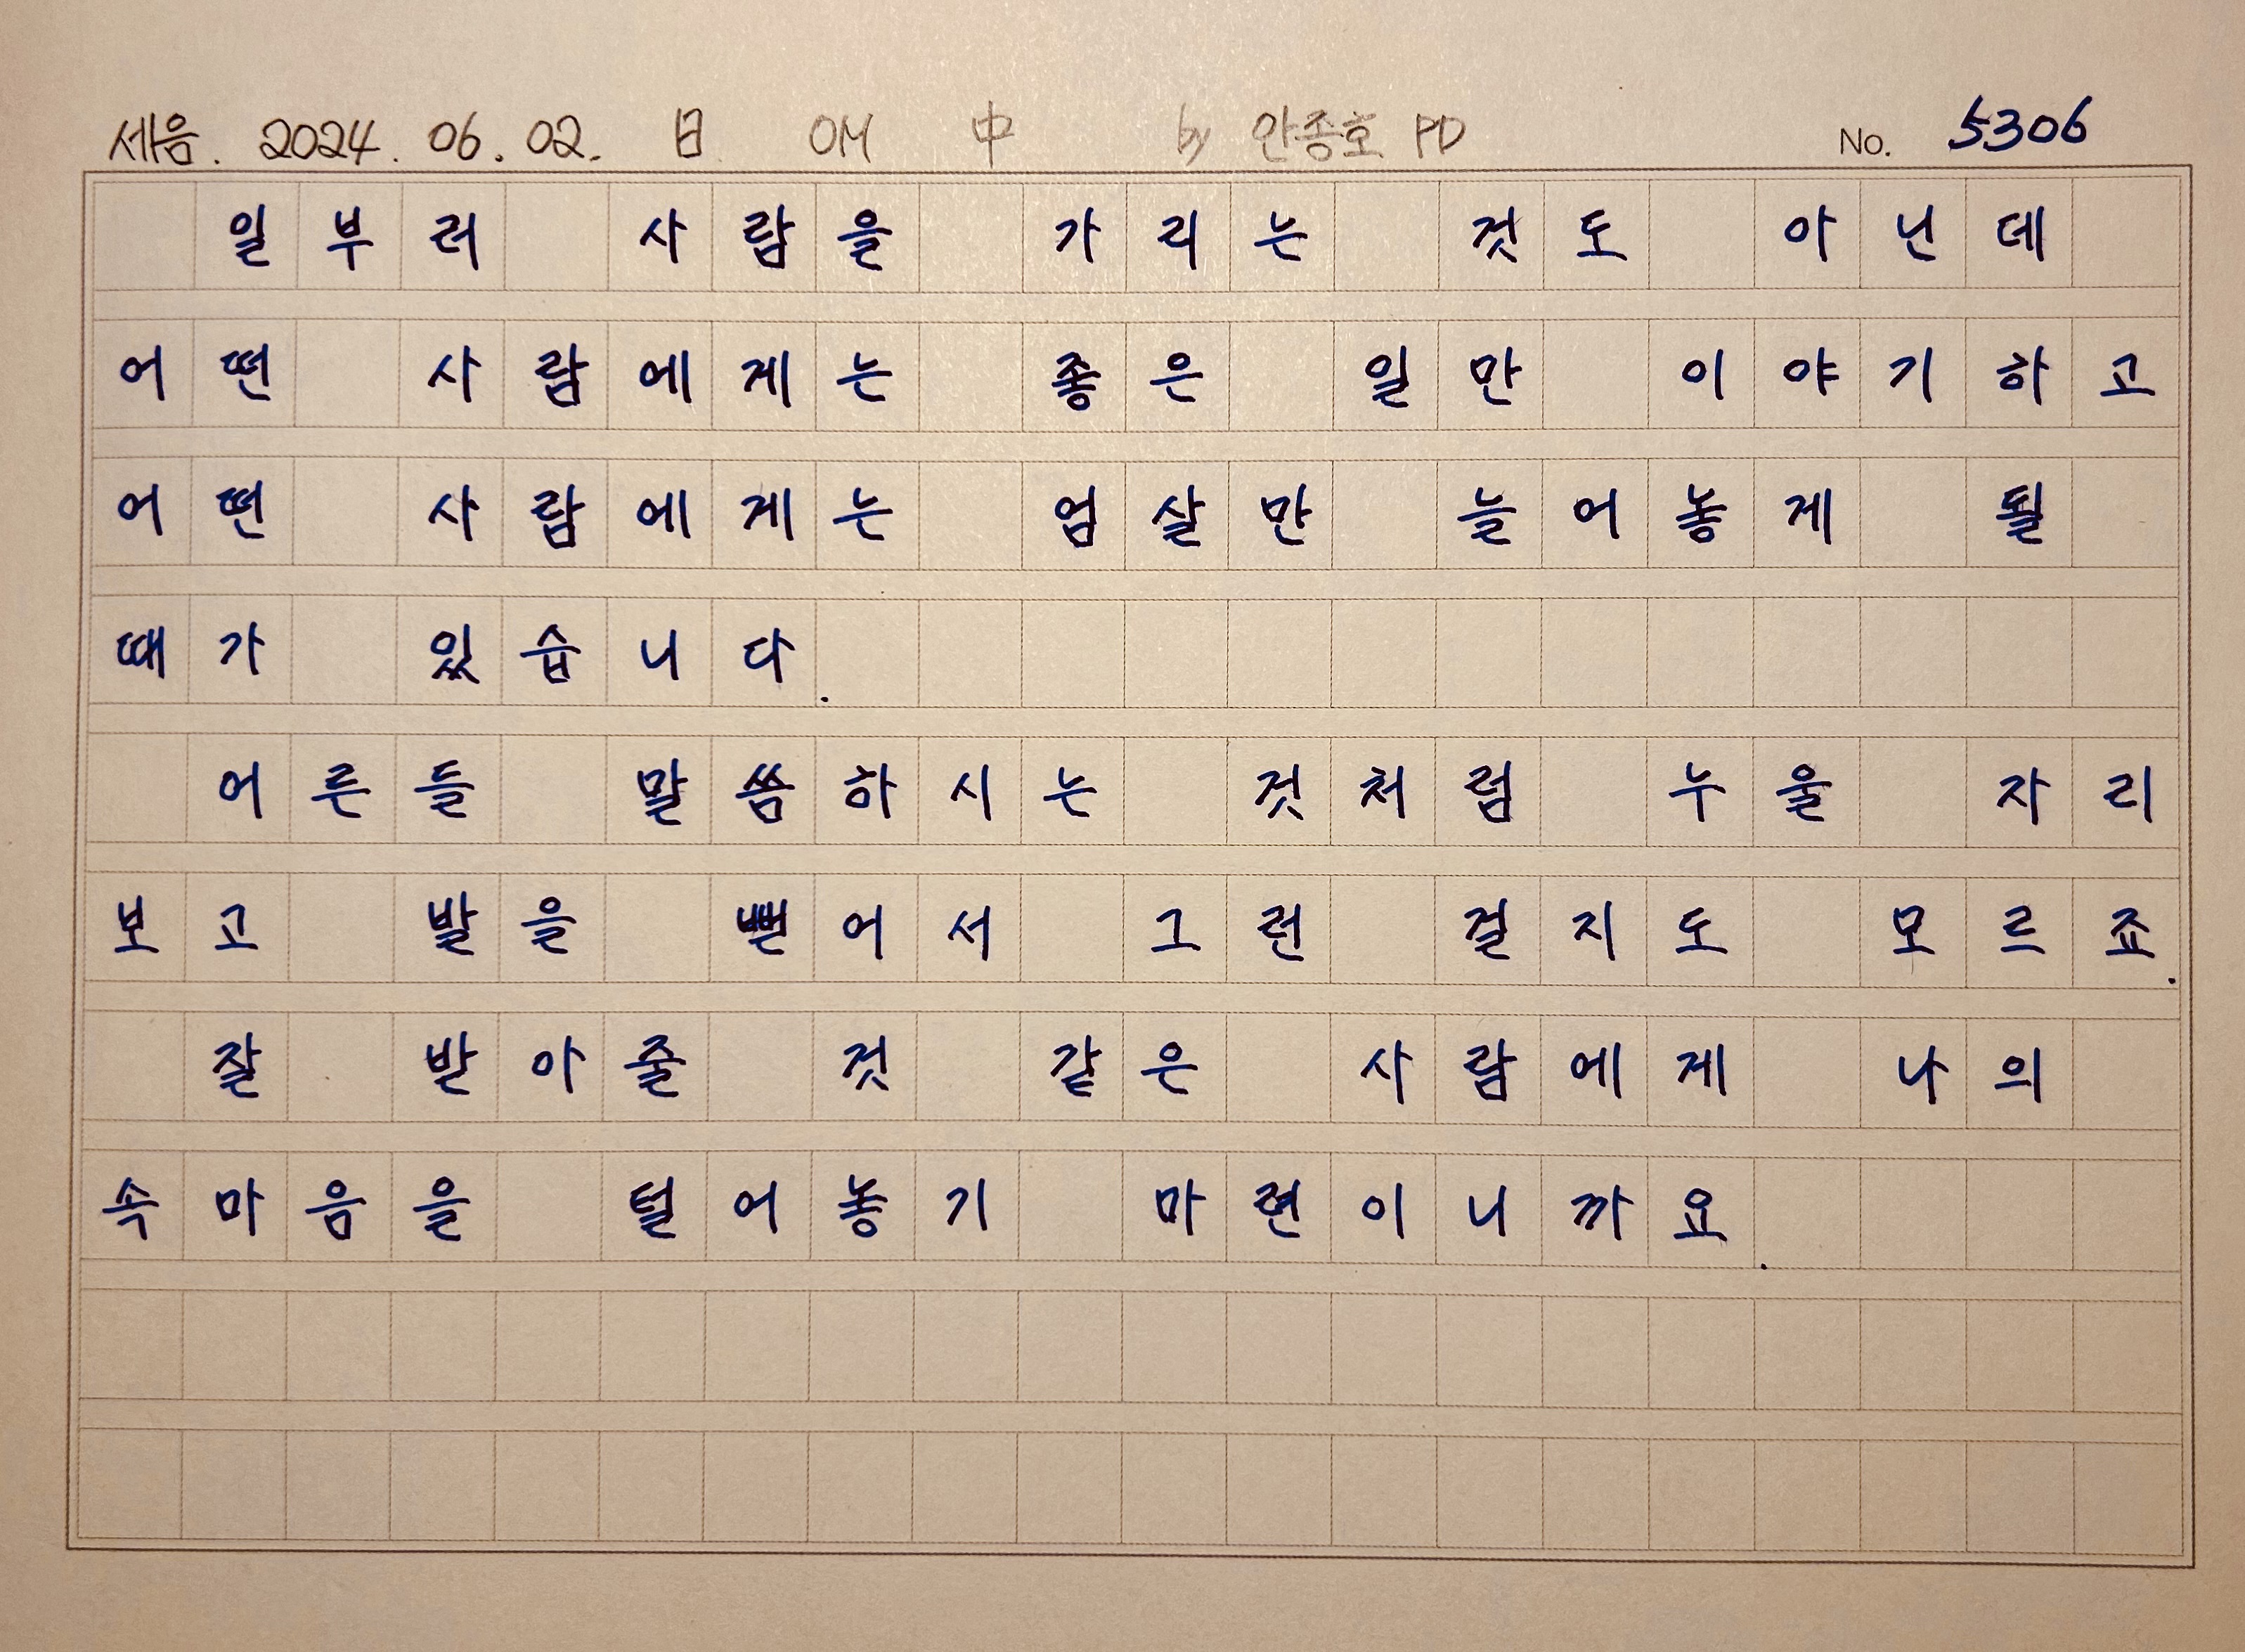 세음. 2024. 06. 02. 日 OM 中 by 안종호 PD No. 5306
일부러 사람을 가리는 것도 아닌데
어떤 사람에게는 좋은 일만 이야기하고
어떤 사람에게는 엄살만 늘어놓게 될
때가 있습니다.
어른들 말씀하시는 것처럼 누울 자리
보고 발을 뻗어서 그런 걸지도 모르죠.
잘 받아줄 것 같은 사람에게 나의
속마음을 털어놓기 마련이니까요.